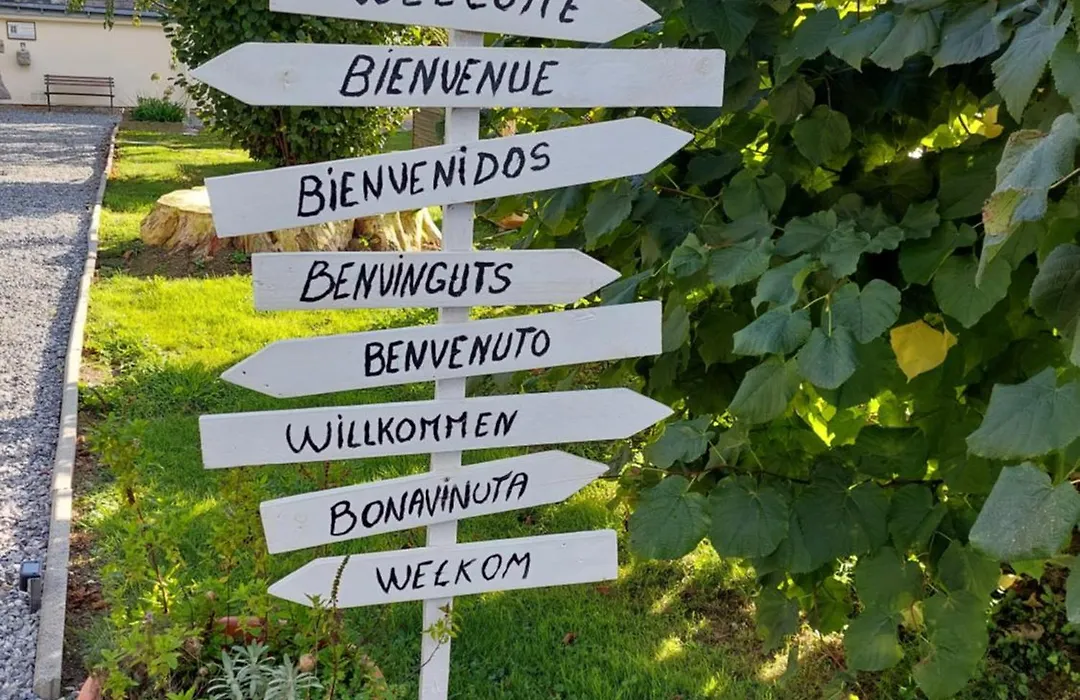 WELCOME
BIENVENUE
BIENVENIDOS
BENVINGUTS
BENVENUTO
WILLKOMMEN
BONAVINUTA
WEŁKOM